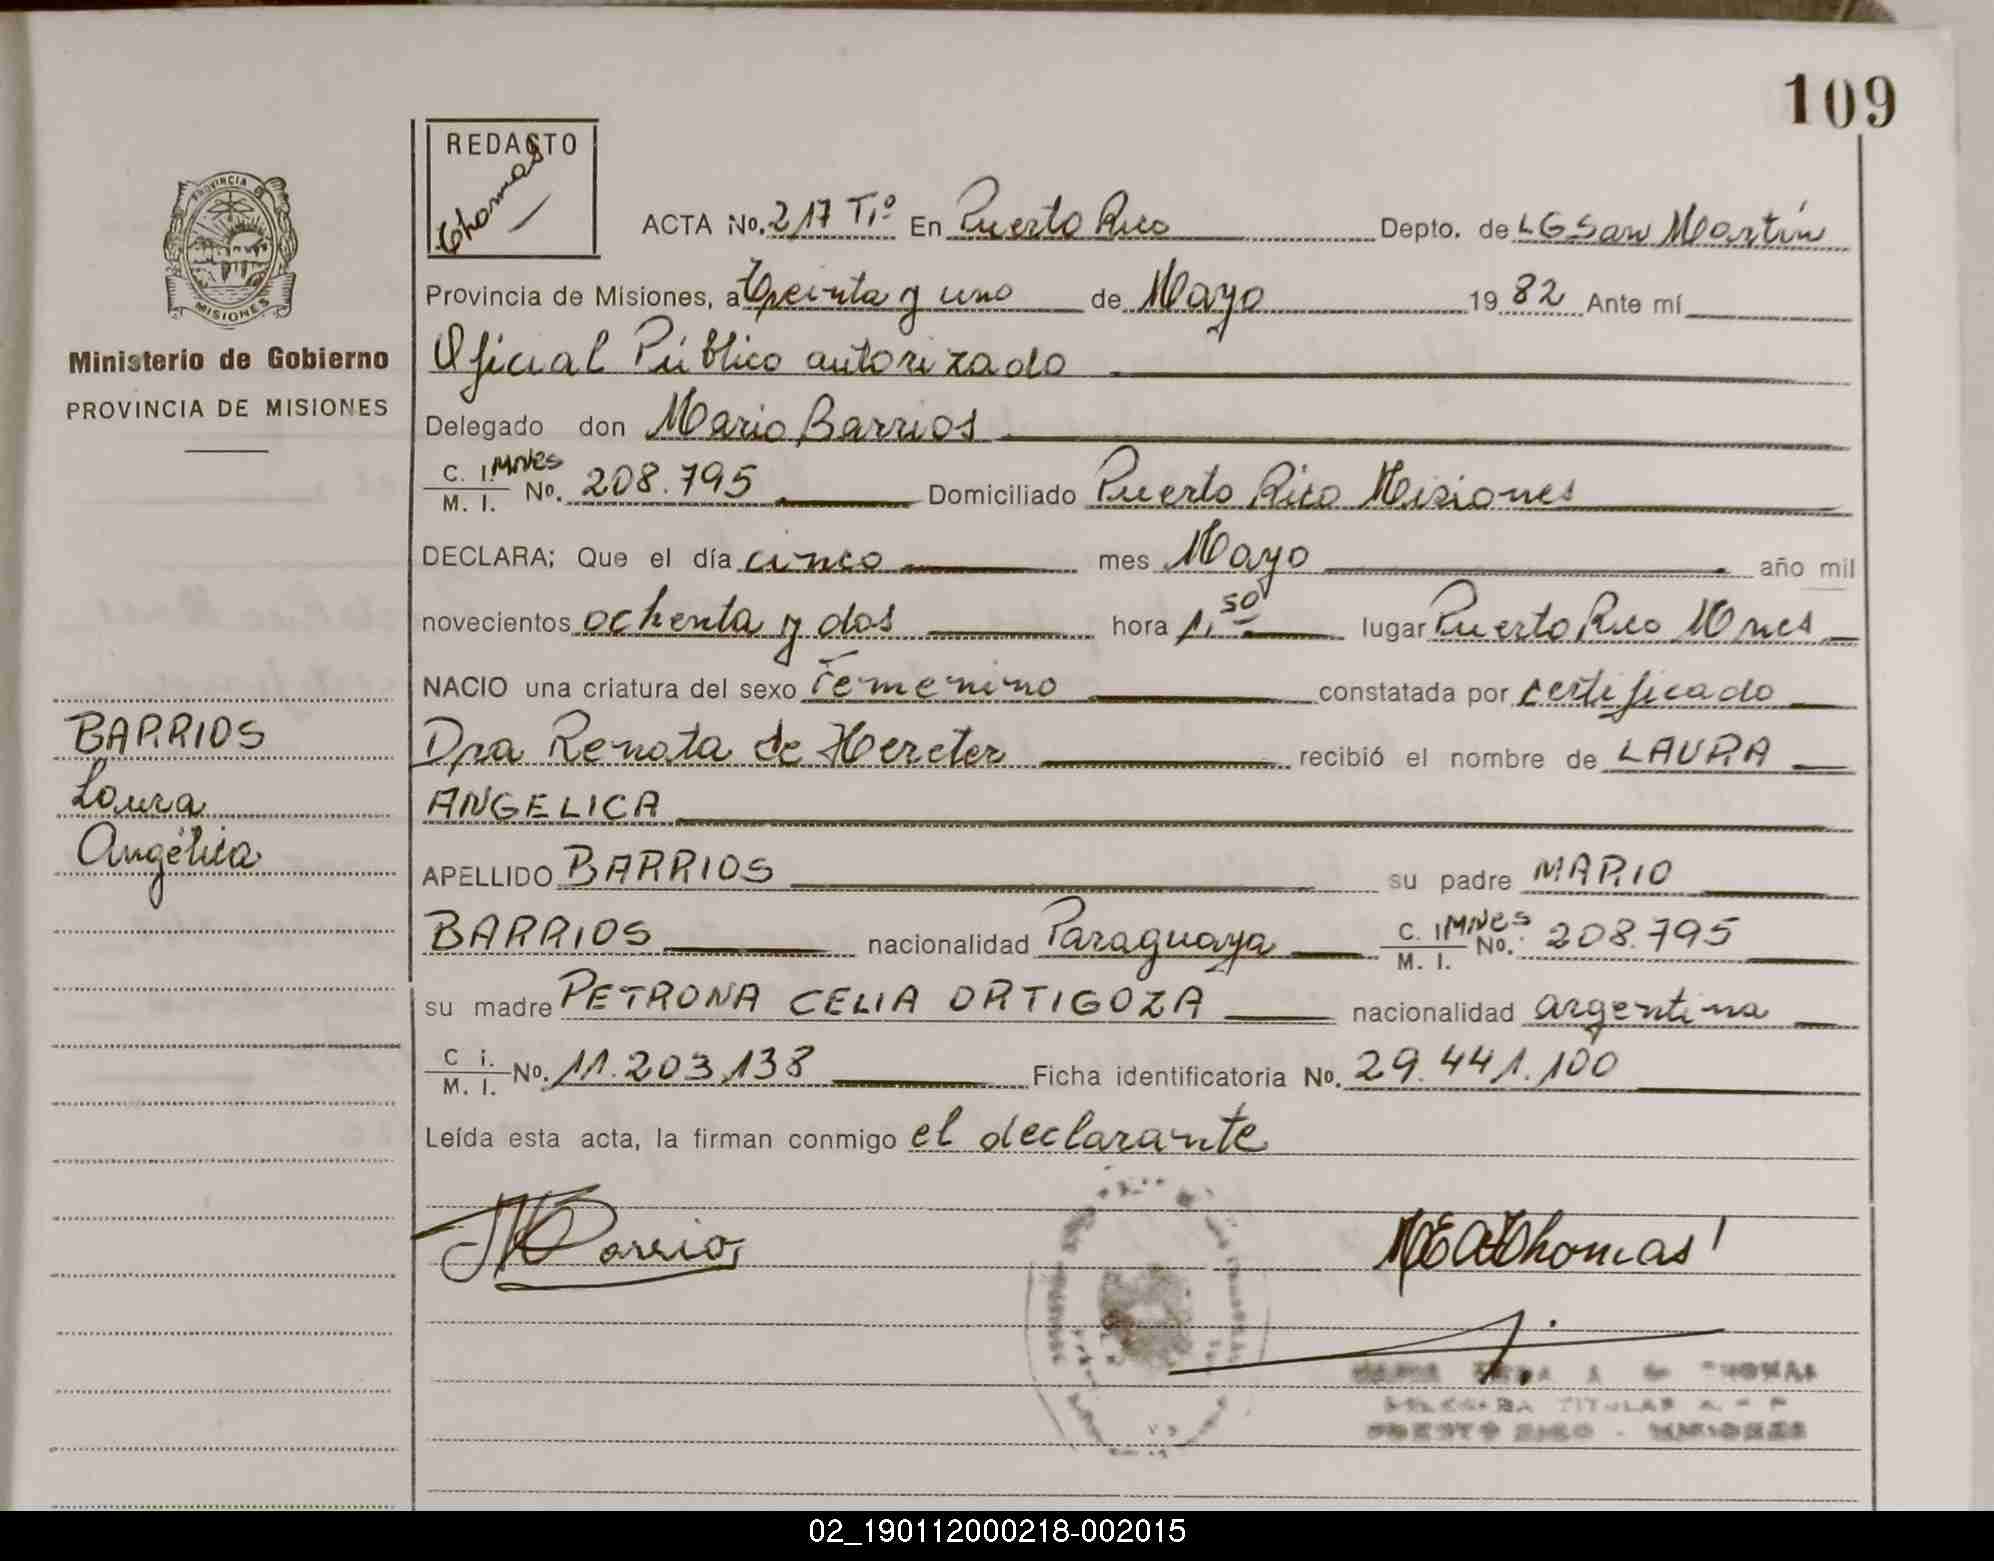 109
REDACTO
Thomas
ACTA No. 217 Tº En Puerto Rico Depto. de LG San Martín
Provincia de Misiones, a Treinta y uno de Mayo 1982 Ante mí
Oficial Público autorizado
Delegado don Mario Barrios
C. I. Mnes
M. I. No. 208.795 Domiciliado Puerto Rico Misiones
DECLARA; Que el día cinco mes Mayo año mil
novecientos ochenta y dos hora 1,50 lugar Puerto Rico Mnes
NACIO una criatura del sexo Femenino constatada por certificado
Dra Renata de Hereter recibió el nombre de LAURA
ANGELICA
APELLIDO BARRIOS su padre MARIO
BARRIOS nacionalidad Paraguaya C. I Mnes
M. I. No. 208.795
su madre PETRONA CELIA ORTIGOZA nacionalidad argentina
C i.
M. I. No. 11.203.138 Ficha identificatoria No. 29.441.100
Leída esta acta, la firman conmigo el declarante
MBarrios
MEAThomas
THOMAS
DELEGADA TITULAR
PUERTO RICO - MISIONES
PROVINCIA DE
MISIONES
Ministerio de Gobierno
PROVINCIA DE MISIONES
BARRIOS
Laura
Angélica
02_190112000218-002015